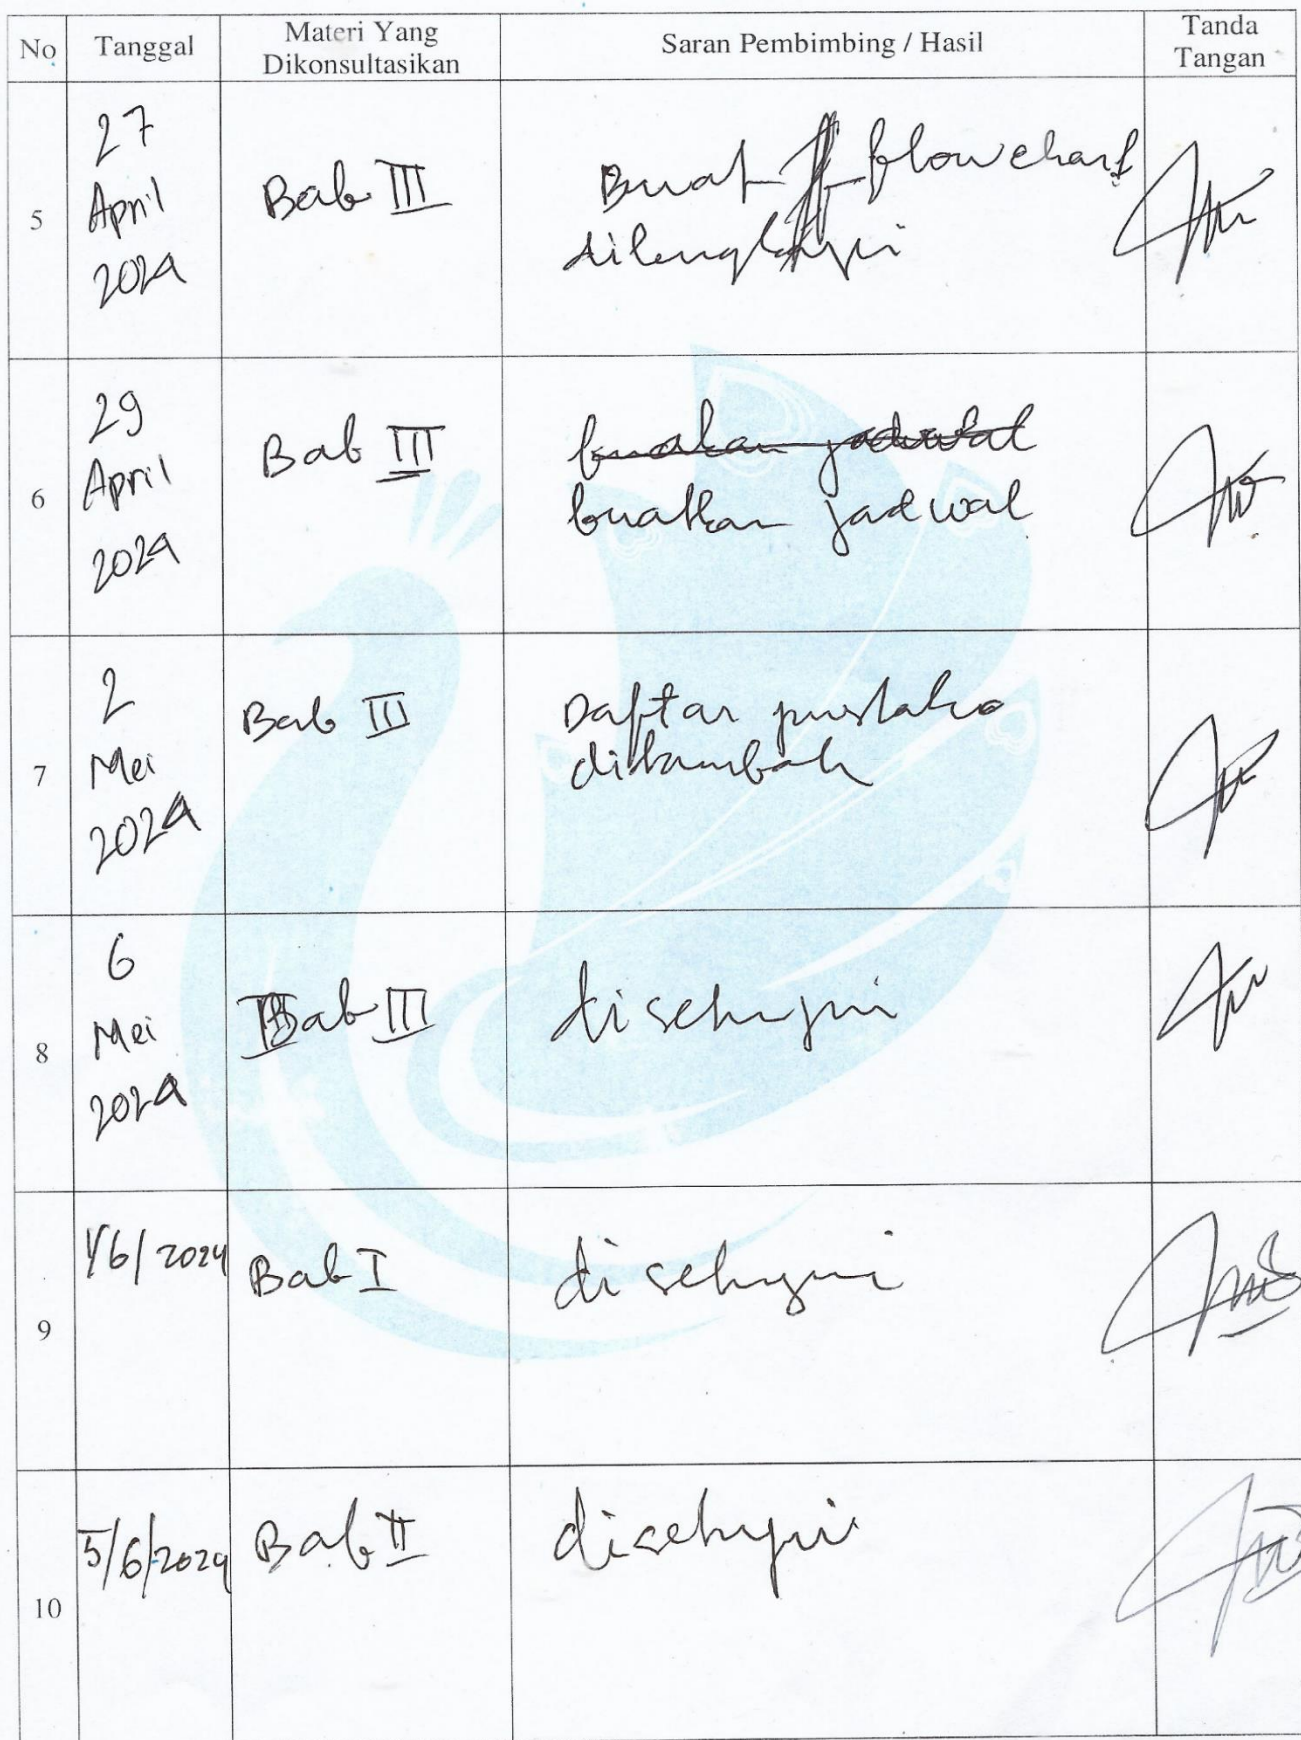 No Tanggal Materi Yang Dikonsultasikan Saran Pembimbing / Hasil Tanda Tangan
5
27
April
2024
Bab III
Buat flowchart
dilengkapi
6
29
April
2024
Bab III
buatkan jadwal
buatkan jadwal
7
2
Mei
2024
Bab III
Daftar pustaka
ditambah
8
6
Mei
2024
Bab III
disetujui
9
1/6/2024
Bab I
disetujui
10
5/6/2024
Bab II
disetujui